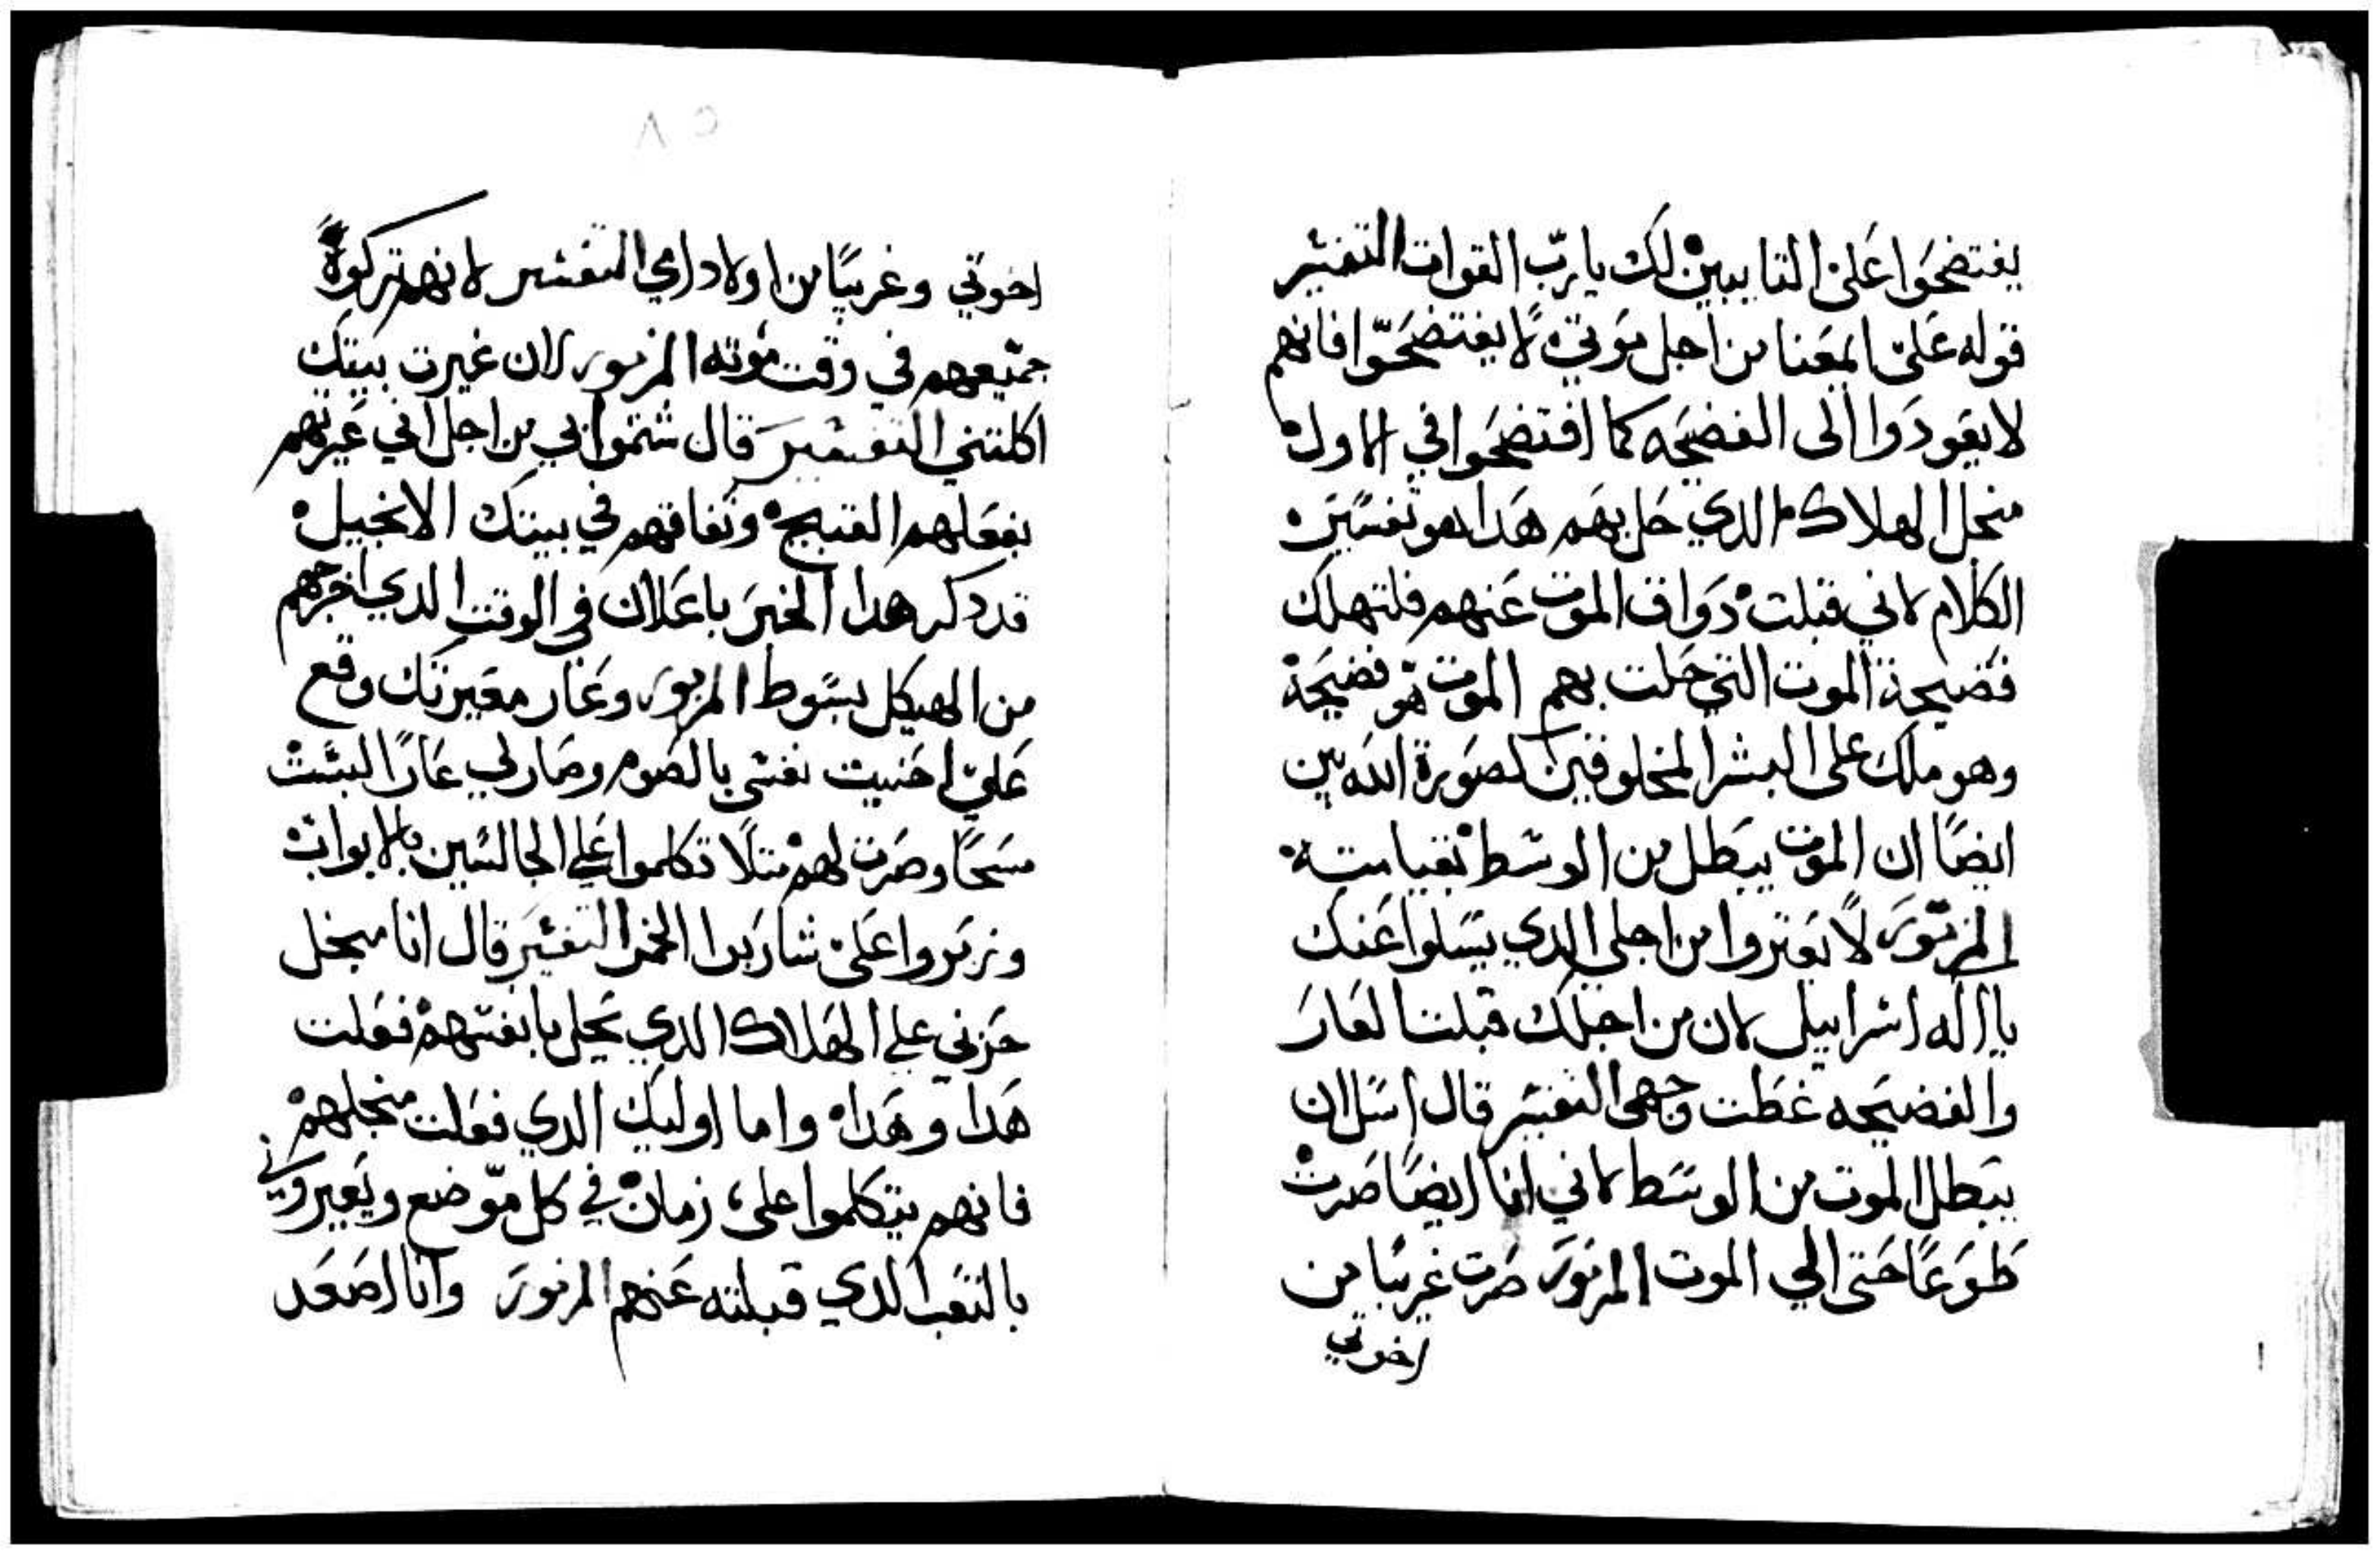 يفتضحوا على التايبين لك يا رب القوات التفسير
قوله على المعنا من اجل موتي لا يفتضحوا فانهم
لا يقودوا الى الفضيحه كما افتضحوا في الاول
منجل الهلاك الدي حل بهم هدا هو تفسير
الكلام لاني قبلت دواق الموت عنهم فلتهلك
فضيحة الموت التي حلت بهم الموت هو فضيحة
وهو ملك على البشر المخلوقين لصورة الله بين
ايضا ان الموت يبطل من الوسط بقيامته
المزمور لا يعتروا من اجلي الدي يسلوا عنك
يا اله اسراييل لان من اجلك قبلت العار
والفضيحه غطت وجهي التفسير قال اسل ان
يبطل الموت من الوسط لاني انا ايضا صرت
طوعا حتى الي الموت المزمور صرت غريبا من
اخوتي
٢٨
اخوتي وغريبا من اولاد امي التفسير لانهم تركوه
جميعهم في وقت موته المزمور لان غيرت بيتك
اكلتني التفسير قال شتموا بي من اجل اني غيرتهم
بفعلهم القبيح ونفاقهم في بيتك الانجيل
قد دكر هدا الخبر باعلان في الوقت الدي اخرجهم
من الهيكل بسوط المزمور وعار معيرتك وقع
علي احنيت نفسي بالصوم وصار لي عارا لبست
مسحا وصرت لهم مثلا تكلموا علي الجالسين بالابواب
وزمروا على شاربوا الخمر التفسير قال انا منجل
حزني علي الهلاك الدي يحل بانفسهم فعلت
هدا وهدا واما اوليك الدي فعلت منجلهم
فانهم يتكلموا على زمان في كل موضع ويعيروني
بالتعب الدي قبلته عنهم المزمور وانا اصعد